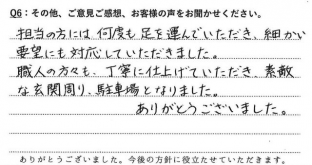 Q6：その他、ご意見ご感想、お客様の声をお聞かせください。
担当の方には何度も足を運んでいただき、細かい
要望にも対応していただきました。
職人の方々も、丁寧に仕上げていただき、素敵
な玄関周り、駐車場となりました。
ありがとうございました。
ありがとうございました。今後の方針に役立たせていただきます。